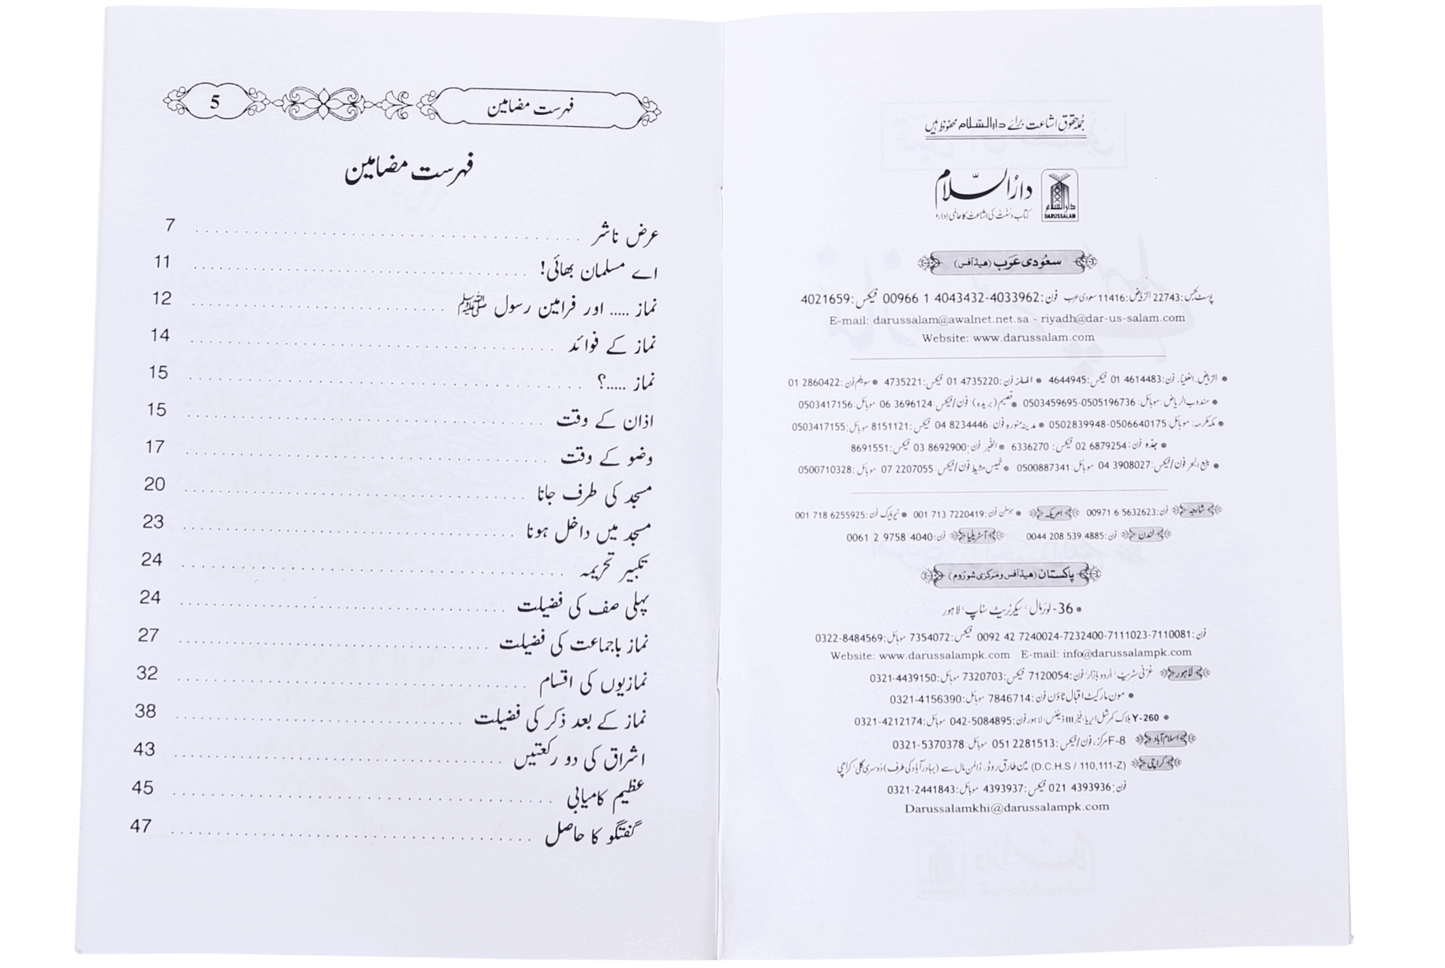 جملہ حقوق اشاعت برائے دارالسلام محفوظ ہیں
دارالسلام
DARUSSALAM
کتاب و سنت کی اشاعت کا عالمی ادارہ
سعودی عرب (هیڈ آفس)
پوسٹ بکس: 22743 الریاض: 11416 سعودی عرب فون: 00966 1 4043432-4033962 فیکس: 4021659
E-mail: darussalam@awalnet.net.sa - riyadh@dar-us-salam.com
Website: www.darussalam.com
● الریاض. العلیا. فون: 01 4614483 فیکس: 4644945 ● الملز فون: 01 4735220 فیکس: 4735221 ● سویلم فون: 01 2860422
● مندوب الریاض: موبائل: 0503459695-0505196736 ● قصیم (بریدہ): فون/فیکس: 06 3696124 موبائل: 0503417156
● مکہ مکرمہ: موبائل: 0502839948-0506640175 ● مدینہ منورہ فون: 04 8234446 فیکس: 8151121 موبائل: 0503417155
● جدہ فون: 02 6879254 فیکس: 6336270 ● الخبر فون: 03 8692900 فیکس: 8691551
● ینبع البحر فون/فیکس: 04 3908027 موبائل: 0500887341 ● خمیس مشیط فون/فیکس: 07 2207055 موبائل: 0500710328
شارجہ فون: 00971 6 5632623 امریکہ ● ہوسٹن فون: 001 713 7220419 ● نیویارک فون: 001 718 6255925
لندن فون: 0044 208 539 4885 آسٹریلیا فون: 0061 2 9758 4040
پاکستان (هیڈ آفس و مرکزی شوروم)
● 36- لوئر مال، سیکرٹریٹ سٹاپ، لاہور
فون: 0092 42 7240024-7232400-7111023-7110081 فیکس: 7354072 موبائل: 0322-8484569
Website: www.darussalampk.com E-mail: info@darussalampk.com
لاہور غزنی سٹریٹ، اردو بازار، فون: 7120054 فیکس: 7320703 موبائل: 0321-4439150
● مون مارکیٹ اقبال ٹاؤن فون: 7846714 موبائل: 0321-4156390
● Y-260 بلاک کمرشل ایریا، فیز III ڈیفنس، لاہور فون: 042-5084895 موبائل: 0321-4212174
اسلام آباد F-8 مرکز، فون/فیکس: 051 2281513 موبائل: 0321-5370378
کراچی (D.C.H.S / 110,111-Z) مین طارق روڈ، ڈالمن مال سے (بہادر آباد کی طرف) دوسری گلی کراچی
فون: 021 4393936 فیکس: 4393937 موبائل: 0321-2441843
Darussalamkhi@darussalampk.com
فہرست مضامین 5
فہرست مضامین
عرض ناشر 7
اے مسلمان بھائی! 11
نماز ..... اور فرامین رسول ﷺ 12
نماز کے فوائد 14
نماز .....؟ 15
اذان کے وقت 15
وضو کے وقت 17
مسجد کی طرف جانا 20
مسجد میں داخل ہونا 23
تکبیر تحریمہ 24
پہلی صف کی فضیلت 24
نماز باجماعت کی فضیلت 27
نمازیوں کی اقسام 32
نماز کے بعد ذکر کی فضیلت 38
اشراق کی دو رکعتیں 43
عظیم کامیابی 45
گفتگو کا حاصل 47